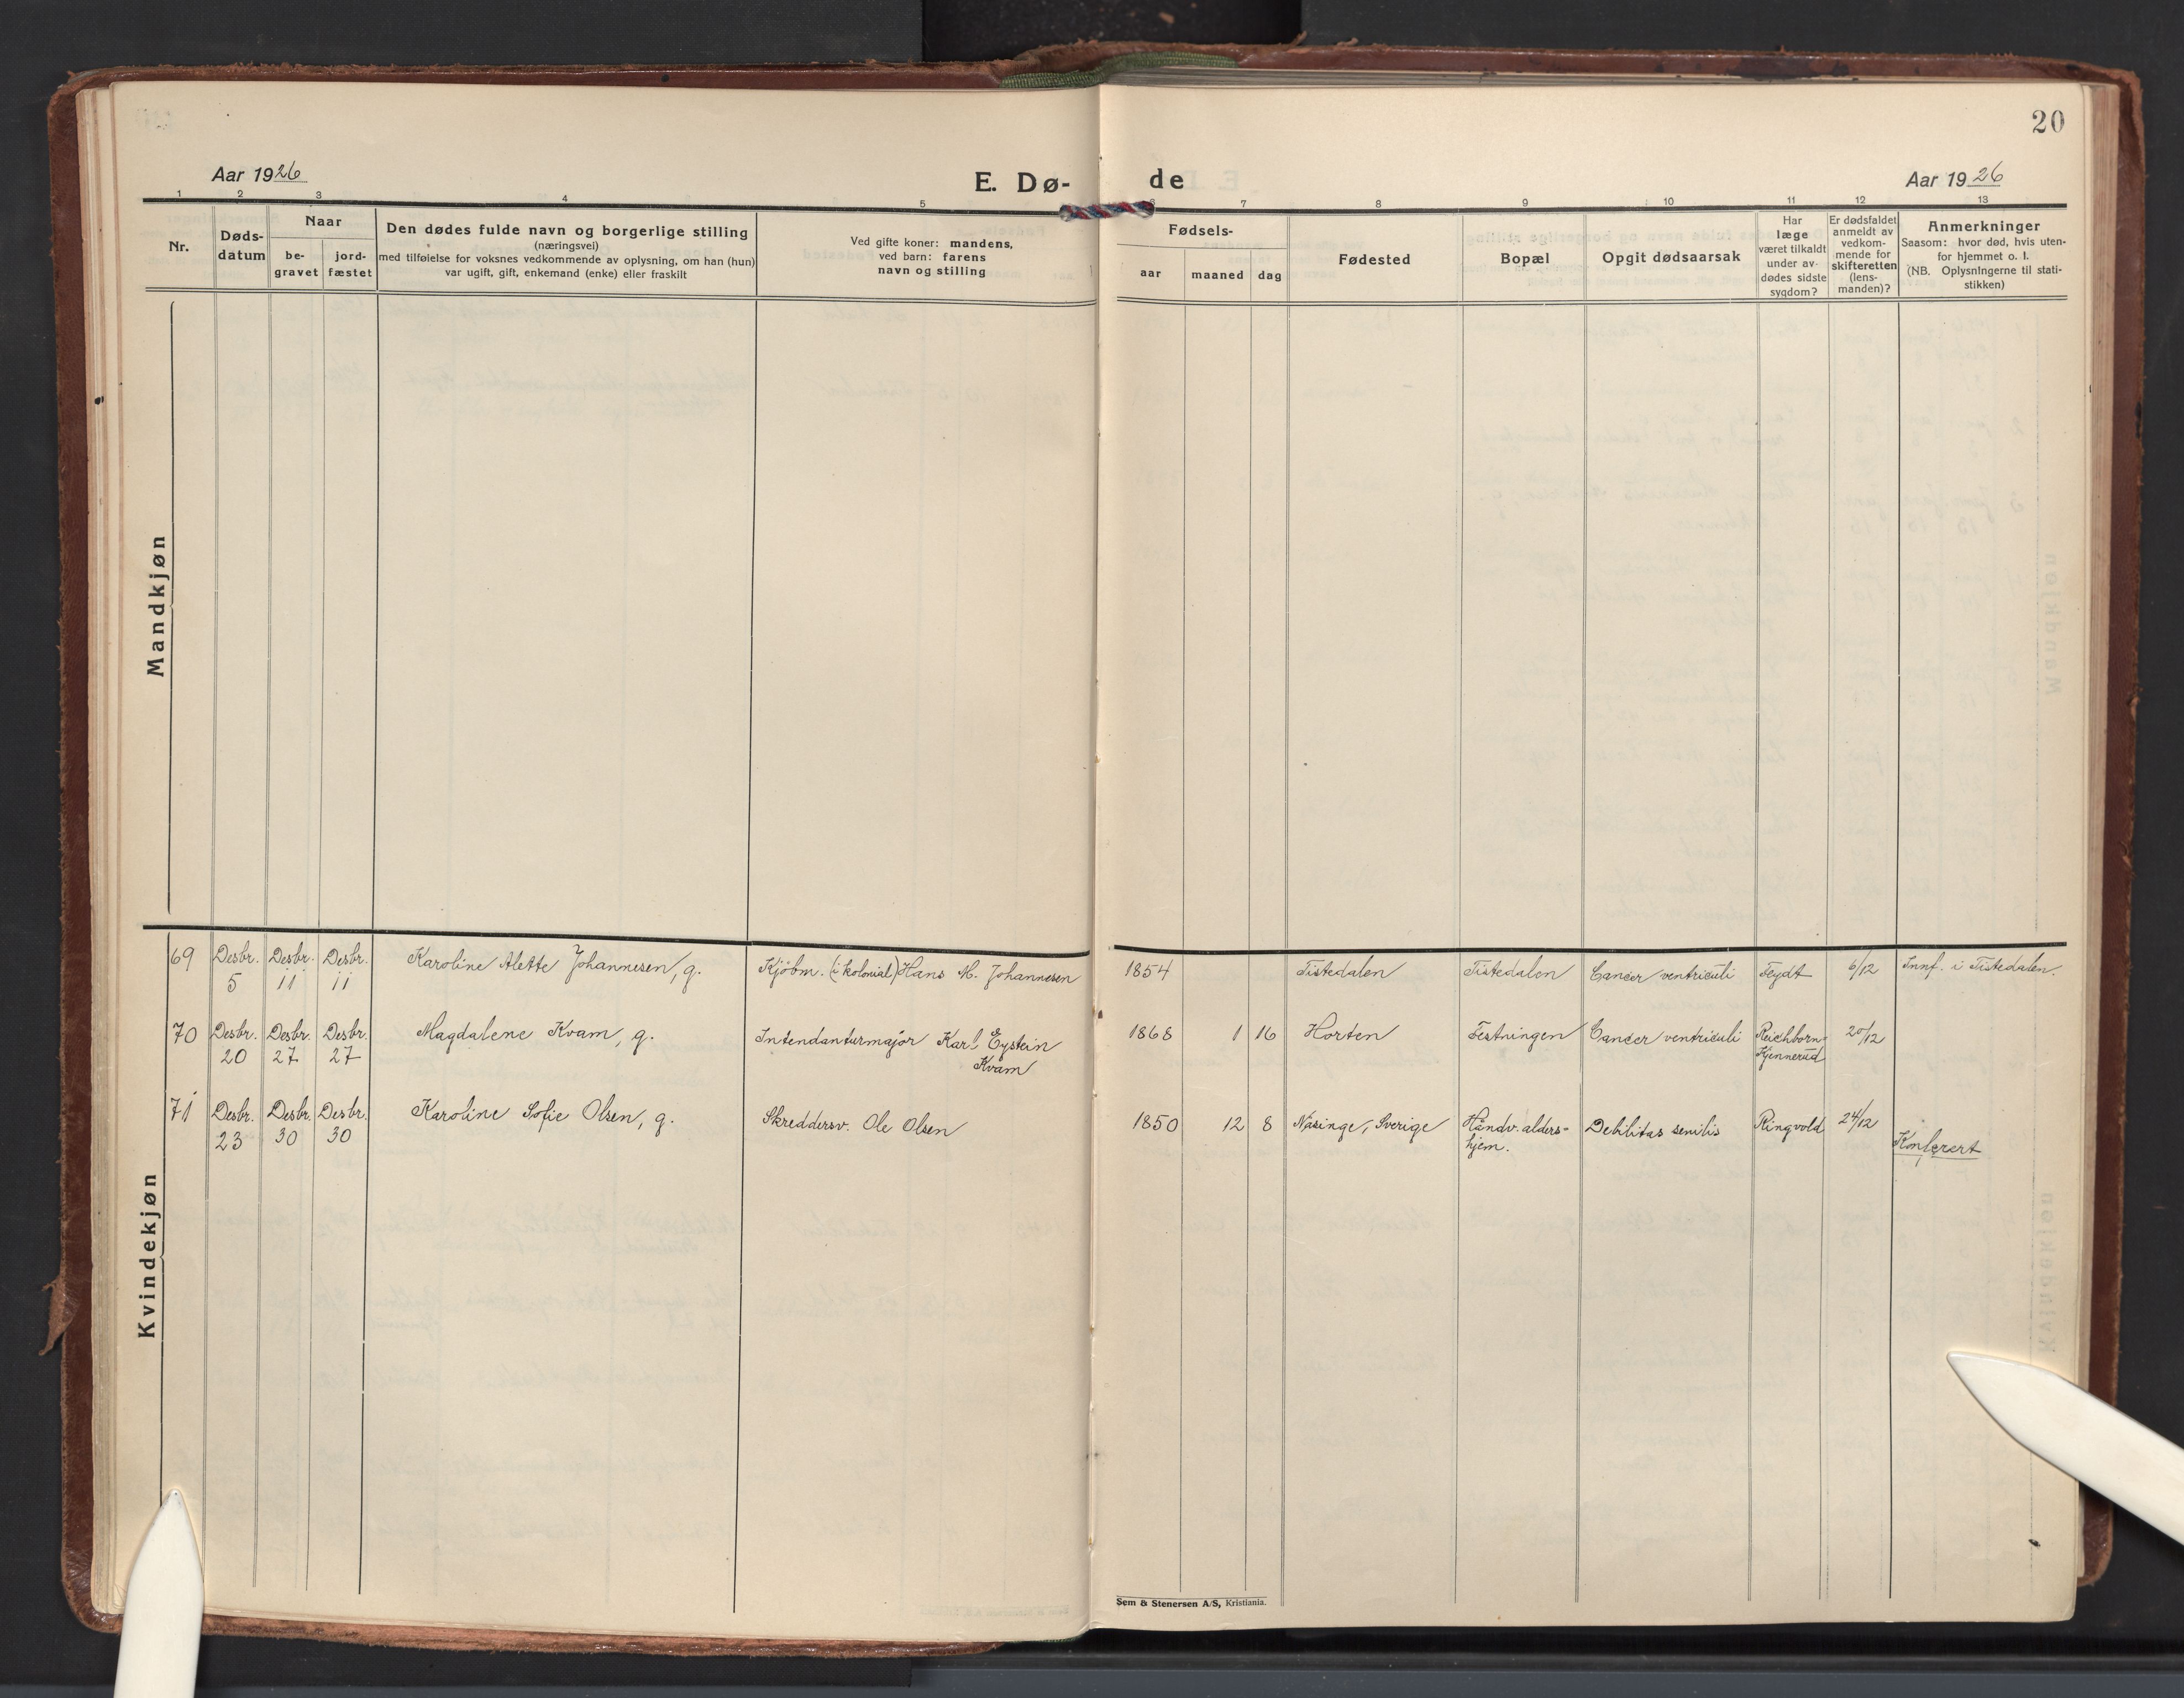 20
Aar 1926
E. Dø-
de
Aar 1926
1 2 3 4 5 6 7 8 9 10 11 12 13
Nr.
Døds-
datum
Naar
be-
gravet
jord-
fæstet
Den dødes fulde navn og borgerlige stilling
(næringsvei)
med tilføielse for voksnes vedkommende av oplysning, om han (hun)
var ugift, gift, enkemand (enke) eller fraskilt
Ved gifte koner: mandens,
ved barn: farens
navn og stilling
Fødsels-
aar maaned dag
Fødested
Bopæl
Opgit dødsaarsak
Har
læge
været tilkaldt
under av-
dødes sidste
sygdom?
Er dødsfaldet
anmeldt av
vedkom-
mende for
skifteretten
(lens-
manden)?
Anmerkninger
Saasom: hvor død, hvis uten-
for hjemmet o. l.
(NB. Oplysningerne til stati-
stikken)
Mandkjøn
Kvindekjøn
69 Desbr. Desbr. Desbr. Karoline Alette Johannesen, g. Kjöbm. (i kolonial) Hans M. Johannesen 1854 Tistedalen Tistedalen Cancer ventriculi Feydt 6/12 Innf. i Tistedalen.
5 11 11
70 Desbr. Desbr. Desbr. Magdalene Kvam, g. Intendanturmajor Karl Eystein 1868 1 16 Horten Festningen Cancer ventriculi Reichborn- 20/12
20 27 27 Kvam Kjennerud
71 Desbr. Desbr. Desbr. Karoline Sofie Olsen, g. Skreddersv. Ole Olsen 1850 12 8 Näsinge, Sverige Håndv. alders- Debilitas senilis Ringvold 24/12
23 30 30 hjem. Konferert
Sem & Stenersen A/S, Kristiania.